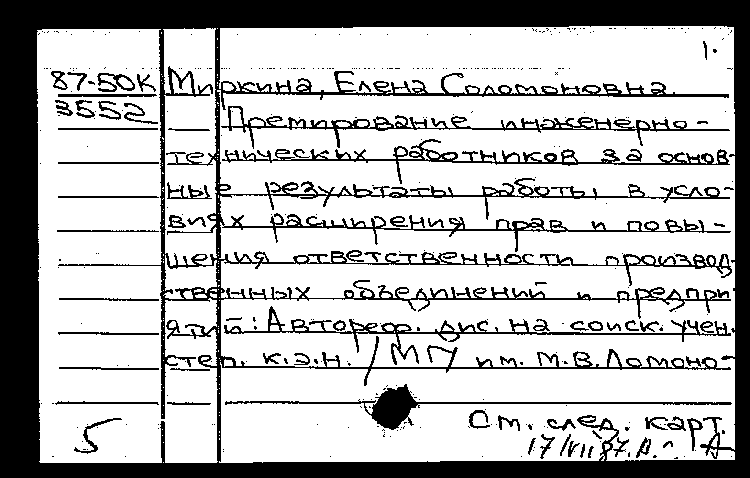 1.
87-50К Миркина, Елена Соломоновна.
3552
Премирование инженерно-
технических работников за основ-
ные результаты работы в усло-
виях расширения прав и повы-
шения ответственности производ-
ственных объединений и предпри-
ятий: Автореф. дис. на соиск. учен.
степ. к.э.н. / МГУ им. М.В. Ломоно-
См. след. карт.
5
17/VII 87.